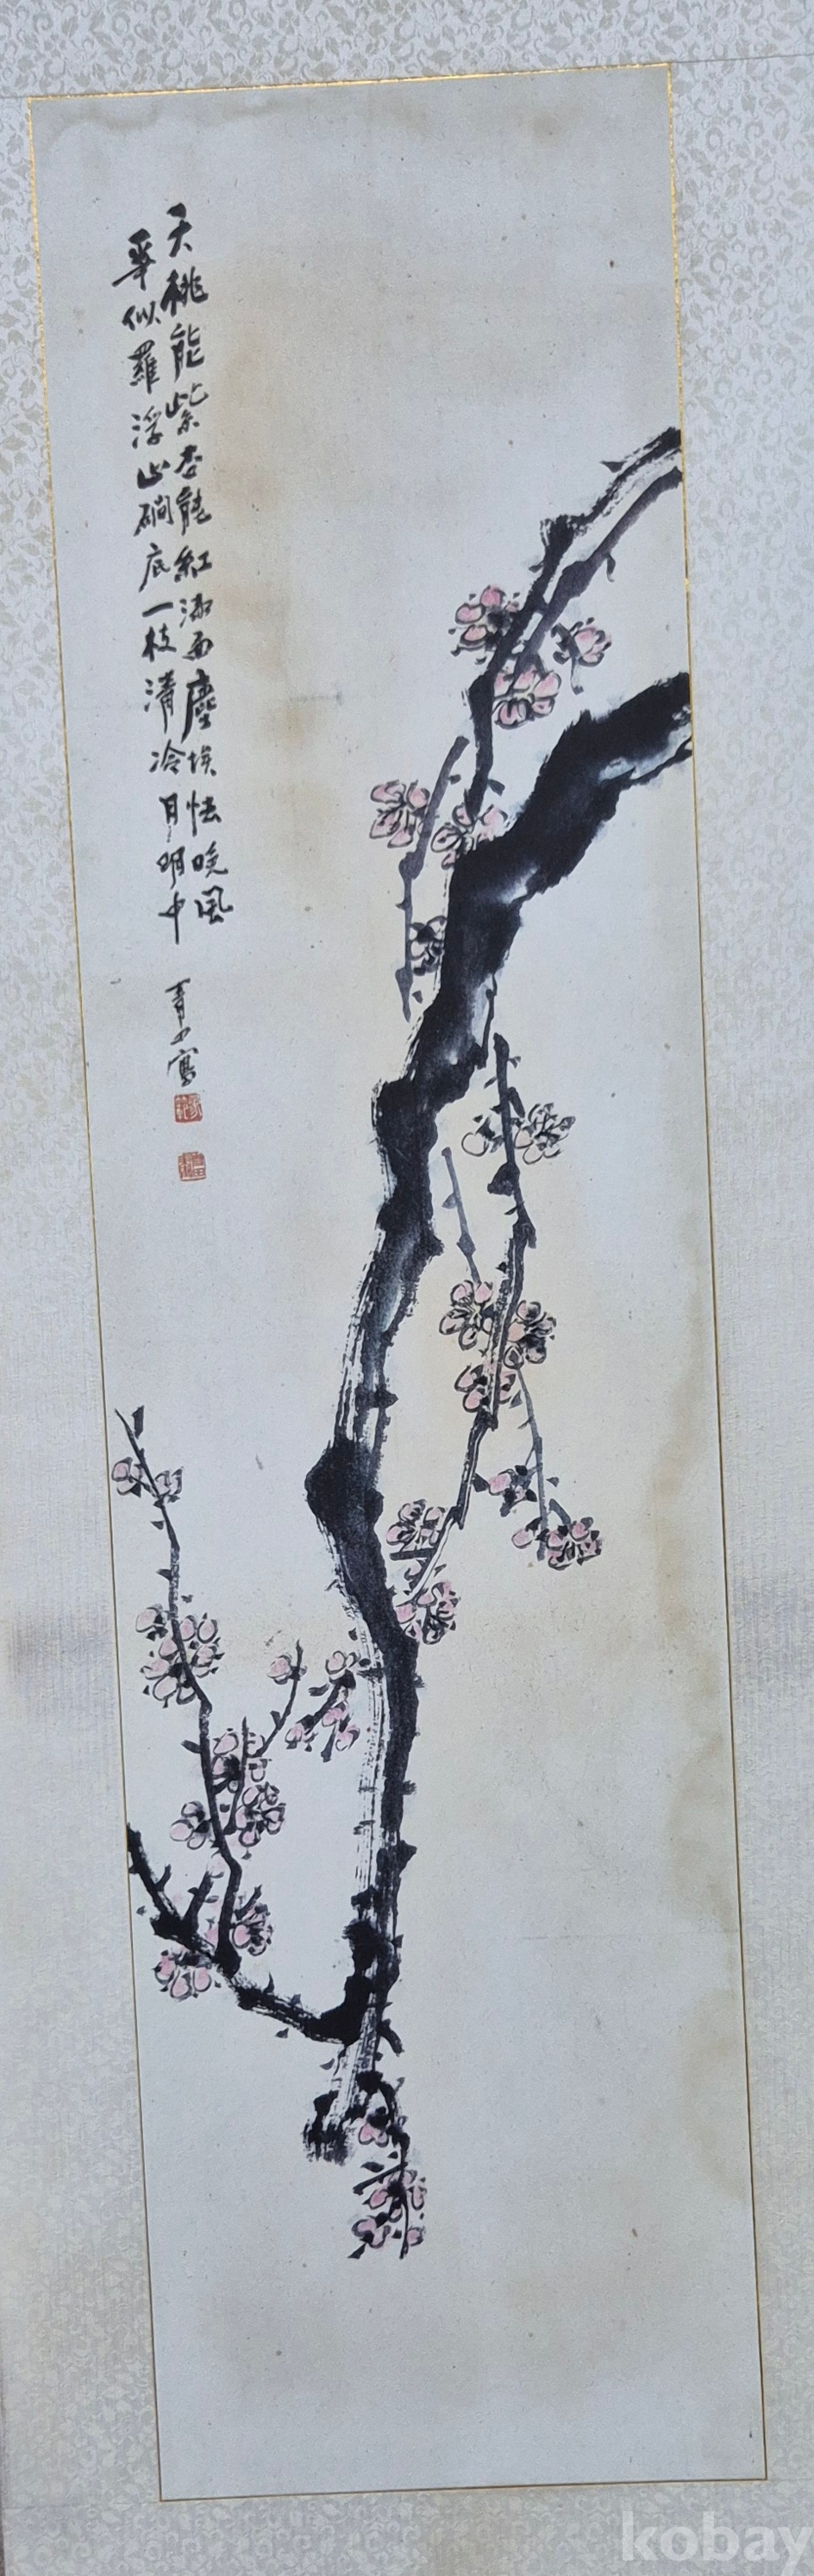 夭桃能紫杏能紅滿面塵埃怯晩風
爭似羅浮山礀底一枝淸冷月明中
靑山寫
kobay